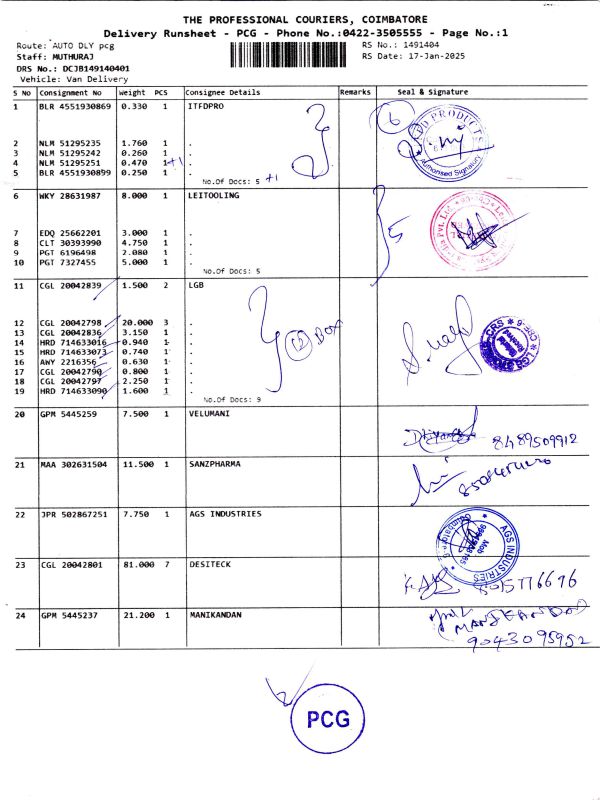 THE PROFESSIONAL COURIERS, COIMBATORE
Delivery Runsheet - PCG - Phone No.:0422-3505555 - Page No.:1
Route: AUTO DLY pcg RS No.: 1491404
Staff: MUTHURAJ RS Date: 17-Jan-2025
DRS No.: DCJB149140401
Vehicle: Van Delivery
S No Consignment No Weight PCS Consignee Details Remarks Seal & Signature
1 BLR 4551930869 0.330 1 ITFDPRO 6
2 NLM 51295235 1.760 1 .
3 NLM 51295242 0.260 1 .
4 NLM 51295251 0.470 1+1 .
5 BLR 4551930899 0.250 1 .
No.Of Docs: 5 +1
PRODUCTS
Authorised Signatory
6 WKY 28631987 8.000 1 LEITOOLING
7 EDQ 25662201 3.000 1 . 5
8 CLT 30393990 4.750 1 .
9 PGT 6196498 2.080 1 .
10 PGT 7327455 5.000 1 .
No.Of Docs: 5
11 CGL 20042839 1.500 2 LGB
12 CGL 20042798 20.000 3 .
13 CGL 20042836 3.150 1 . 12 BOX
14 HRD 714633016 0.940 1 .
15 HRD 714633073 0.740 1 .
16 AWY 2216356 0.630 1 .
17 CGL 20042790 0.800 1 .
18 CGL 20042797 2.250 1 .
19 HRD 714633090 1.600 1 .
No.Of Docs: 9
20 GPM 5445259 7.500 1 VELUMANI
8489509912
21 MAA 302631504 11.500 1 SANZPHARMA
22 JPR 502867251 7.750 1 AGS INDUSTRIES
AGS INDUSTRIES
23 CGL 20042801 81.000 7 DESITECK
8015776696
24 GPM 5445237 21.200 1 MANIKANDAN
MANIKANDAN
9043095952
PCG